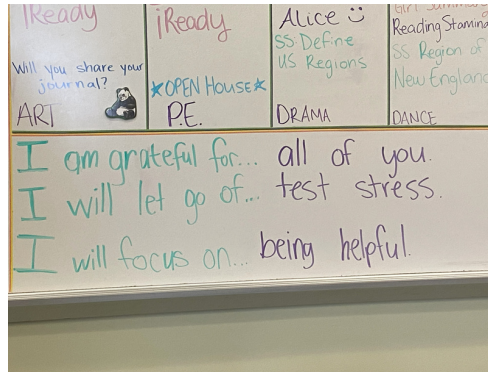 iReady
Will you share your
journal?
ART
iReady
★OPEN HOUSE★
P.E.
Alice
SS Define
US Regions
DRAMA
Reading Stamina
SS Region of
New England
DANCE
I am grateful for... all of you.
I will let go of... test stress.
I will focus on... being helpful.